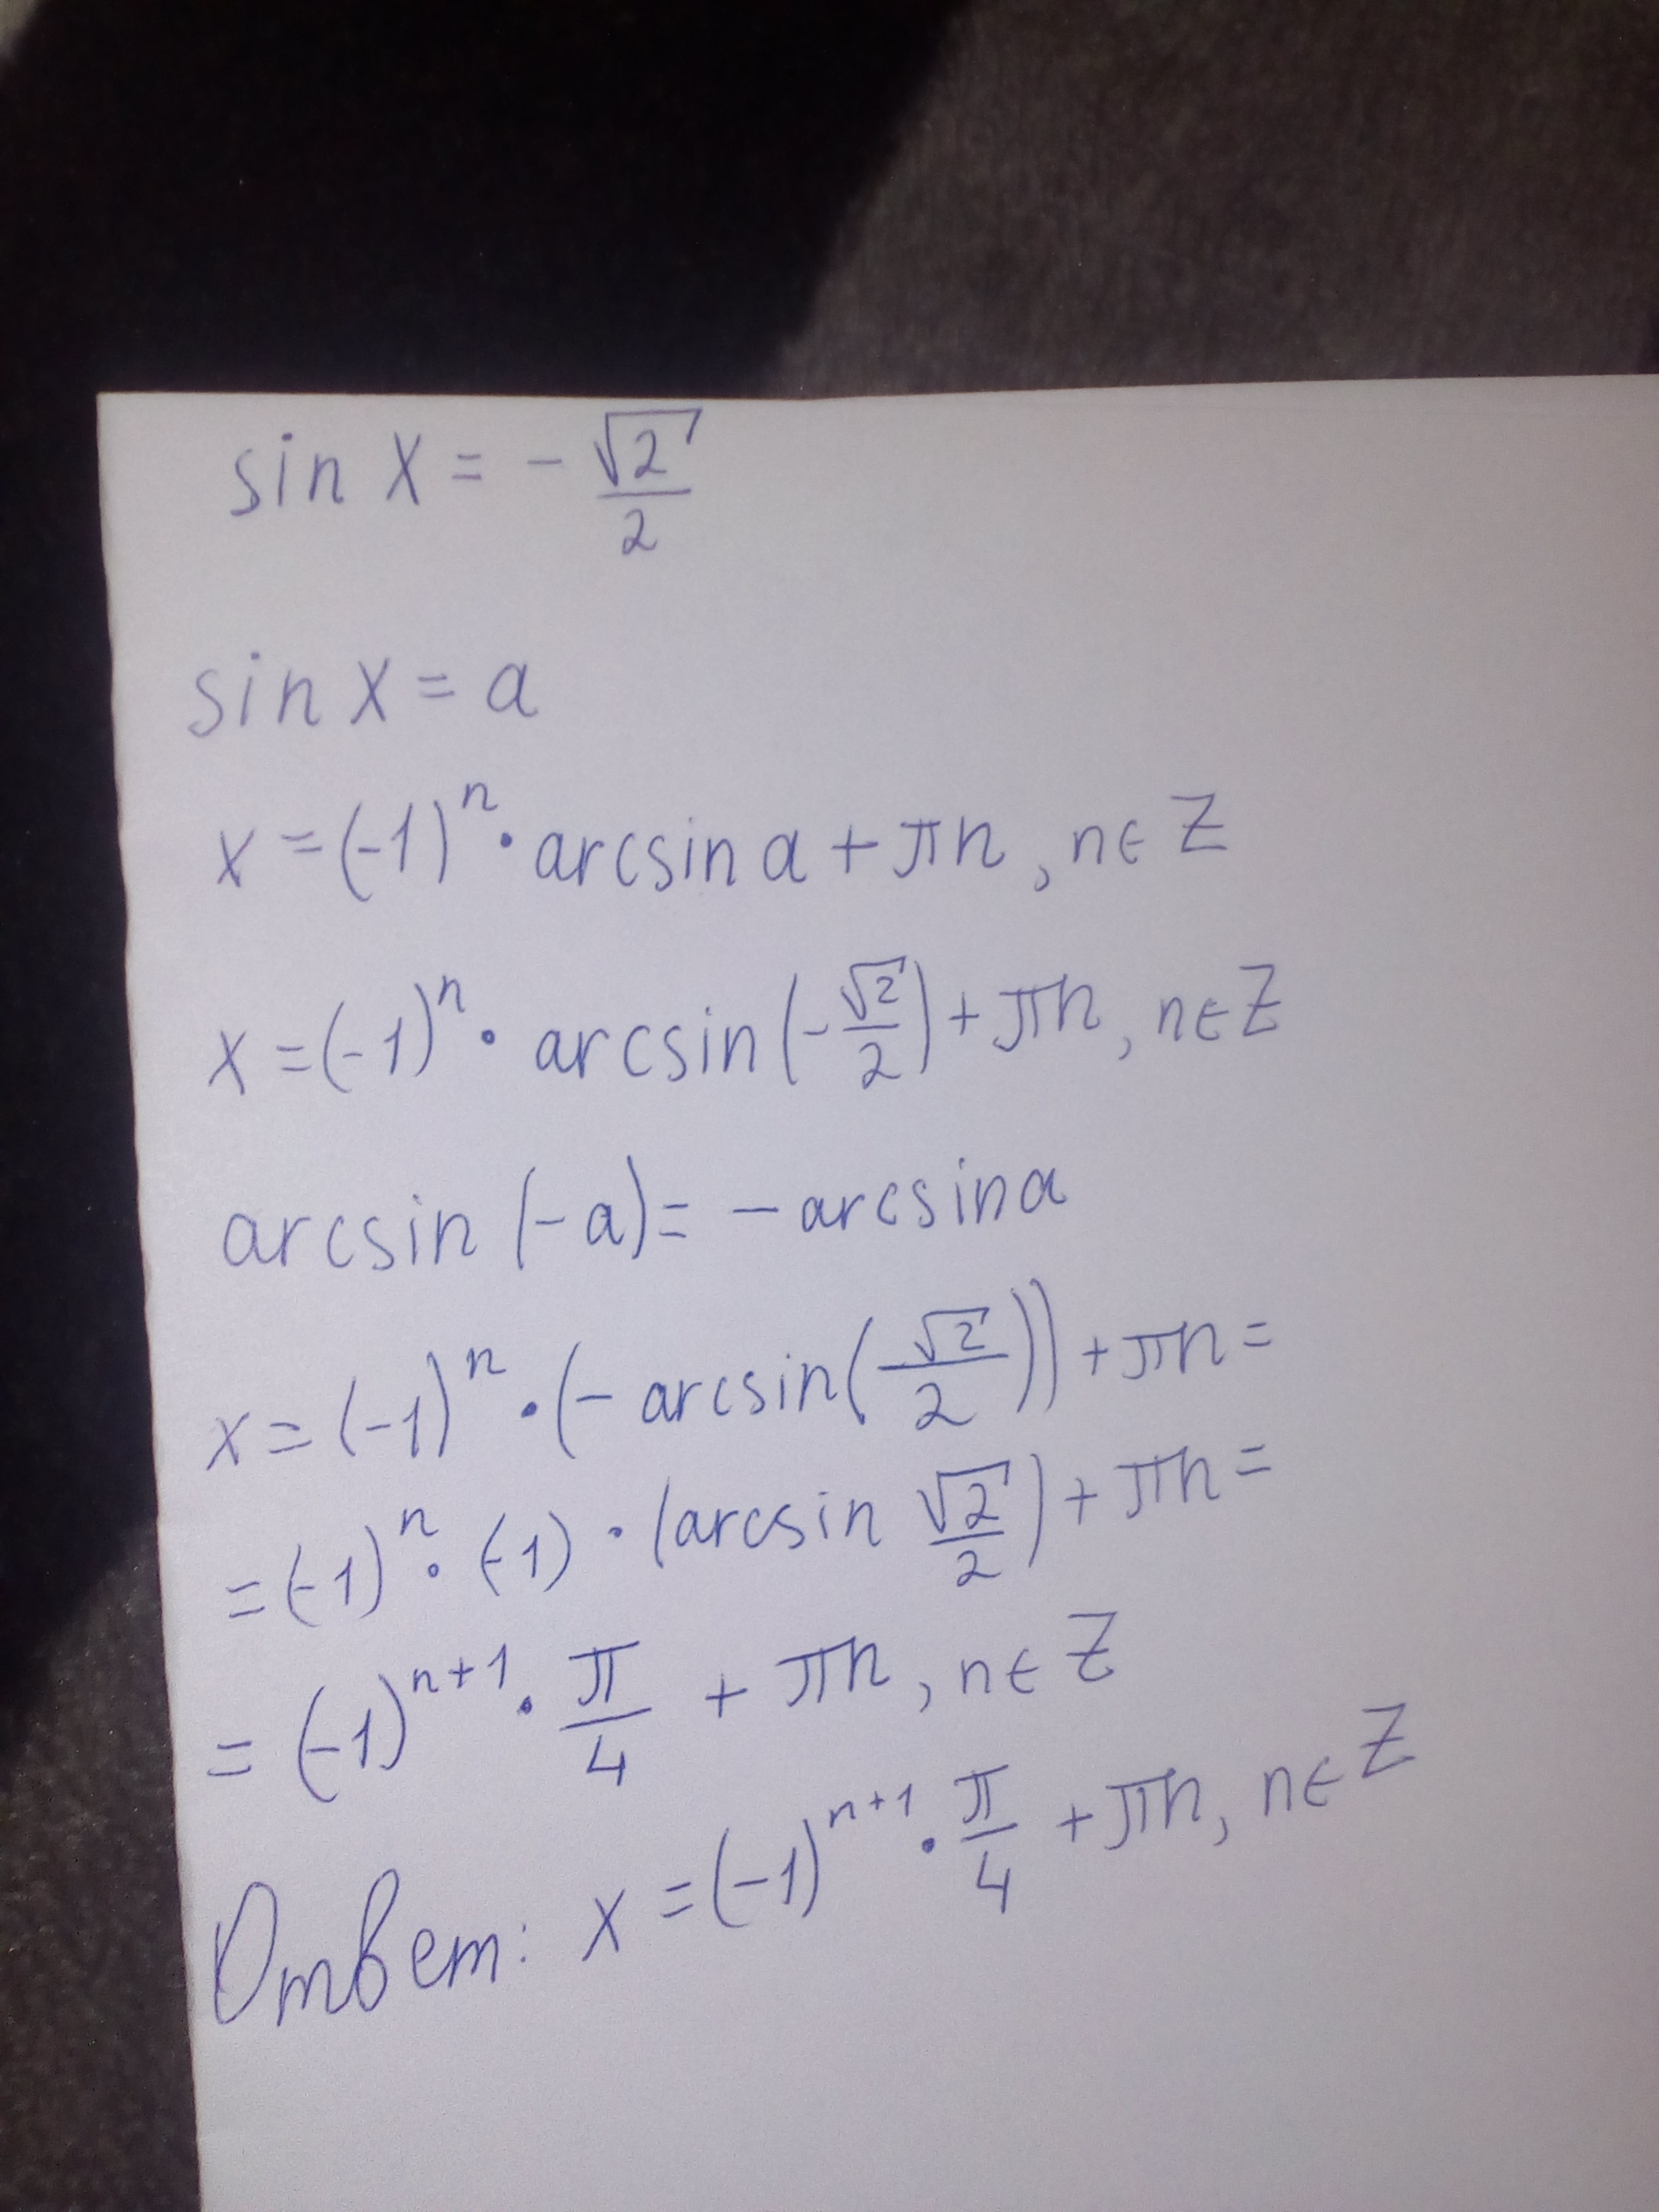 sin x = - √2/2
sin x = a
x = (-1)ⁿ · arcsin a + πn, n ∈ Z
x = (-1)ⁿ · arcsin (- √2/2) + πn, n ∈ Z
arcsin (-a) = - arcsin a
x = (-1)ⁿ · (- arcsin (√2/2)) + πn =
= (-1)ⁿ · (-1) · (arcsin √2/2) + πn =
= (-1)ⁿ⁺¹ · π/4 + πn, n ∈ Z
Ответ: x = (-1)ⁿ⁺¹ · π/4 + πn, n ∈ Z